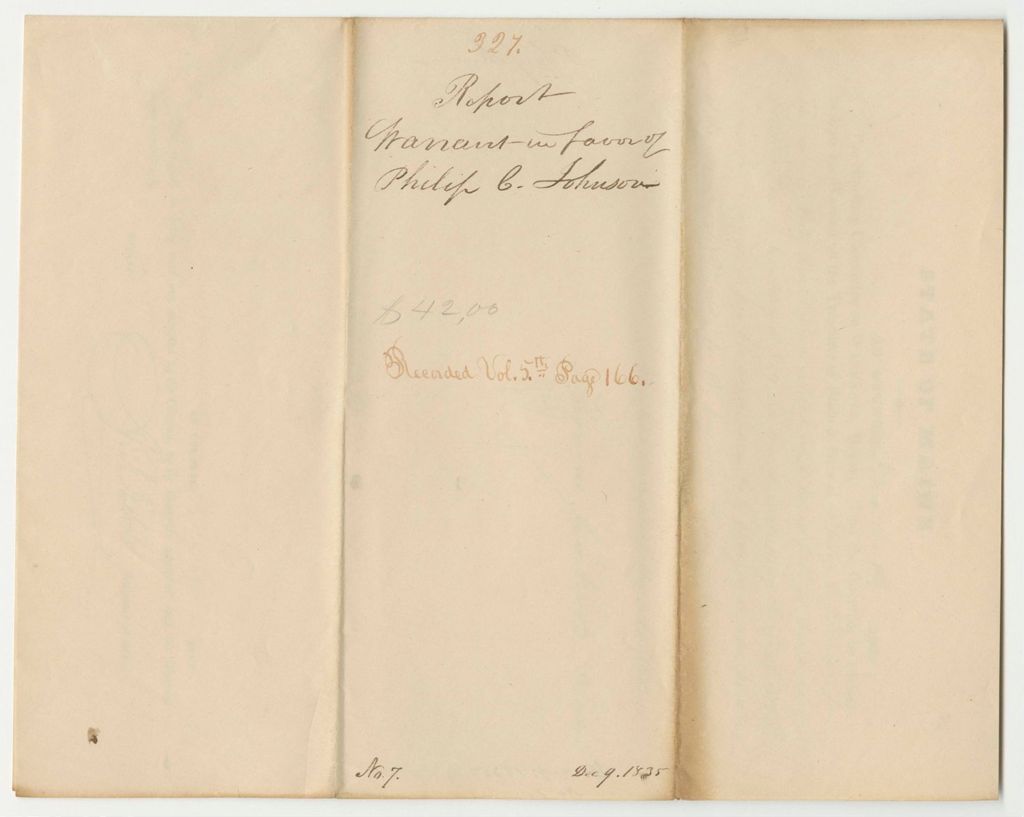 327.
Report
Warrant in favor of
Philip C. Johnson
$42,00
Recorded Vol. 5.th Page 166.
No. 7. Dec 9. 1835